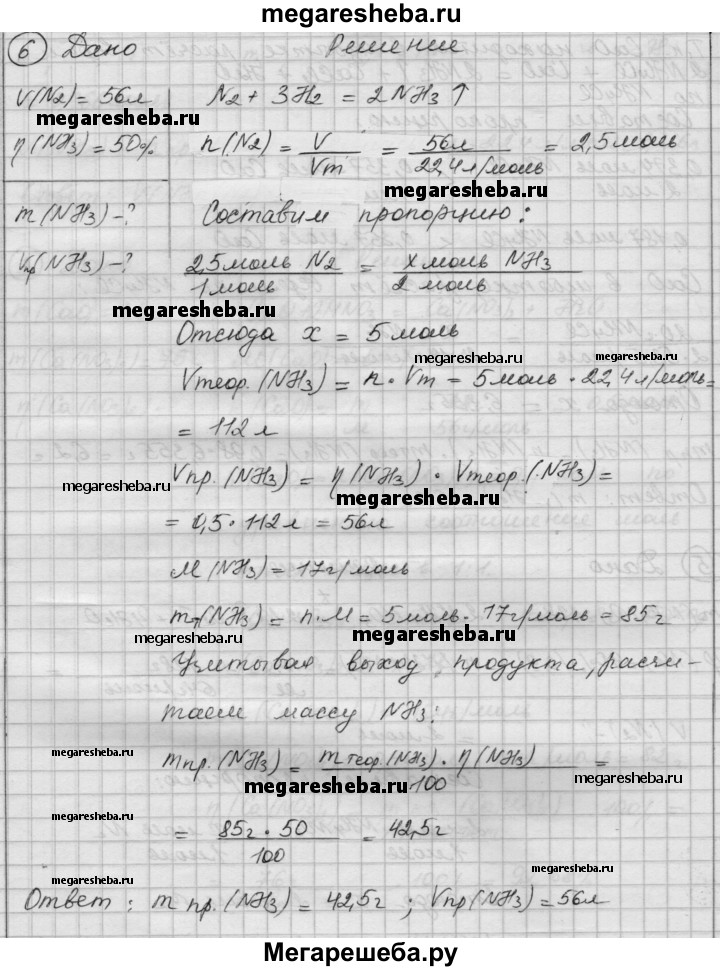 megaresheba.ru
6 Дано Решение
V(N2)=56л N2 + 3H2 = 2NH3↑
megaresheba.ru
η(NH3)=50% n(N2) = V/Vm = 56л/22,4л/моль = 2,5моль
megaresheba.ru
m(NH3)-? Составим пропорцию:
Vпр(NH3)-? 2,5моль N2/1моль = x моль NH3/2 моль
megaresheba.ru
Отсюда x = 5 моль
megaresheba.ru megaresheba.ru
Vтеор.(NH3) = n · Vm = 5моль · 22,4л/моль =
= 112 л
Vпр.(NH3) = η(NH3) · Vтеор.(NH3) =
megaresheba.ru megaresheba.ru
= 0,5 · 112л = 56л
M(NH3) = 17г/моль
mт(NH3) = n·M = 5моль · 17г/моль = 85г
megaresheba.ru megaresheba.ru
Учитывая выход продукта, расчи-
таем массу NH3:
megaresheba.ru
mпр.(NH3) = mтеор.(NH3) · η(NH3)/100 =
megaresheba.ru megaresheba.ru
= 85г · 50/100 = 42,5г
megaresheba.ru
megaresheba.ru
Ответ: m пр.(NH3) = 42,5г ; Vпр(NH3) = 56л
Мегарешеба.ру